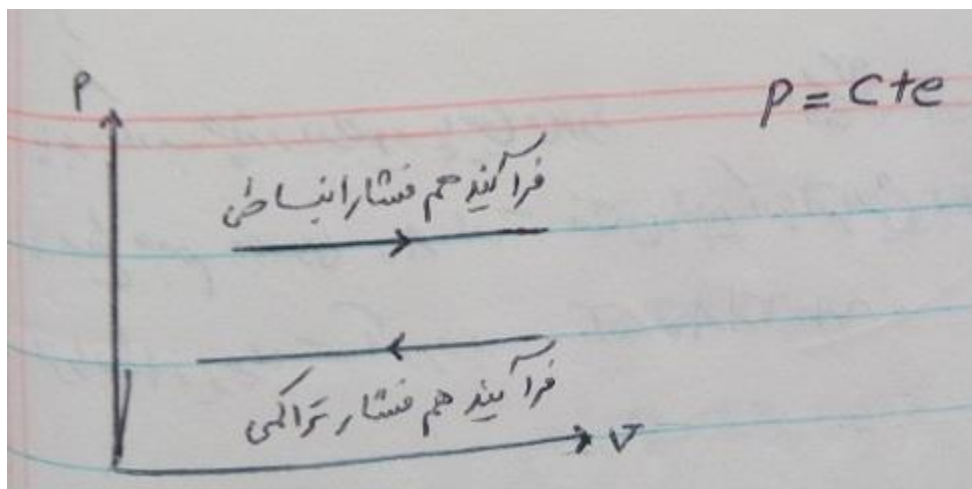 P
P = cte
فرآیند هم فشار انبساطی
فرآیند هم فشار تراکمی
V